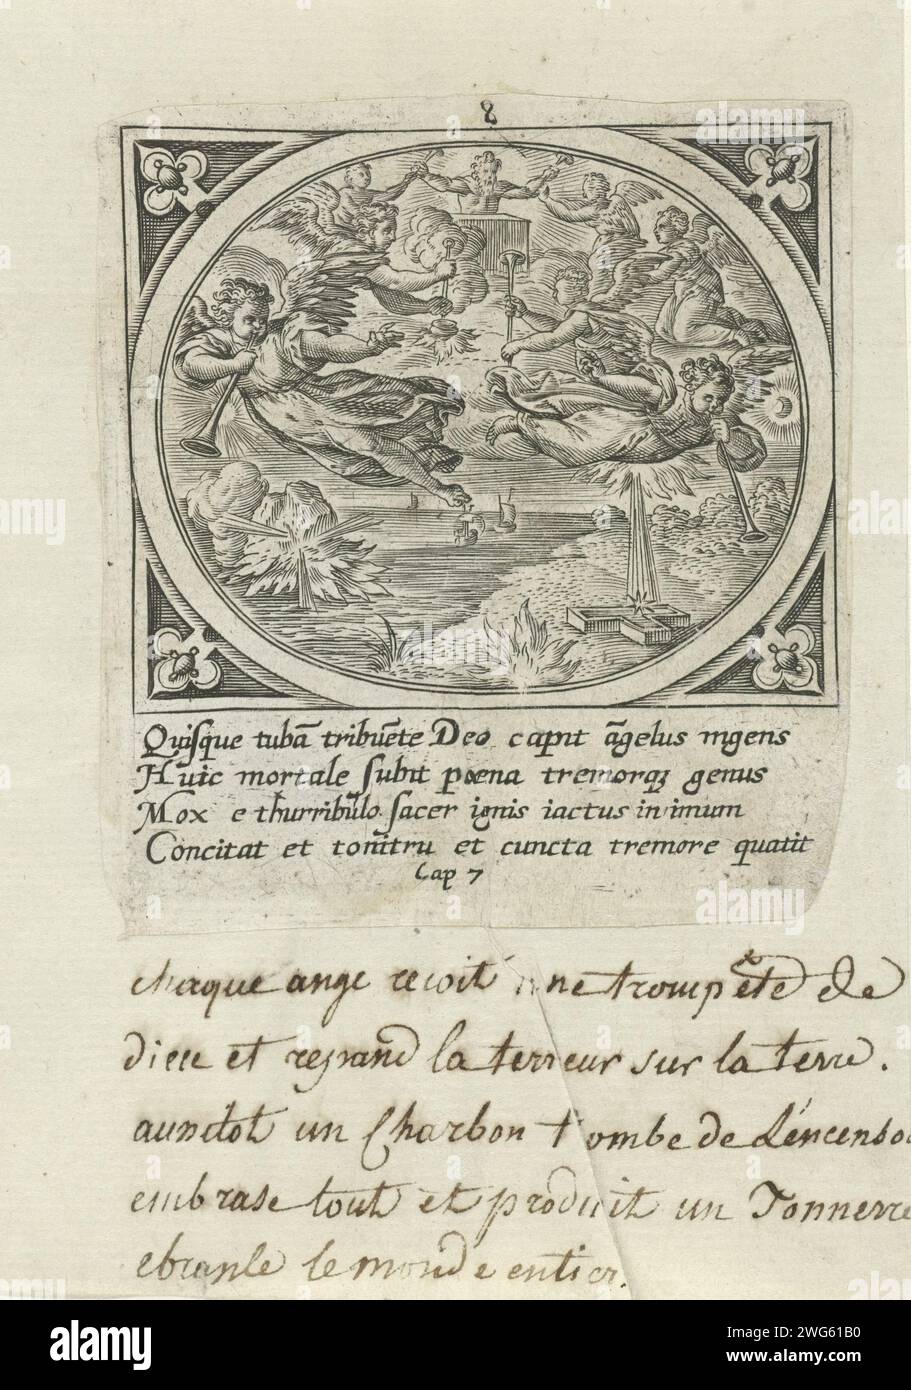 8
Quisque tubā tribuēte Deo capit āgelus ingens
Huic mortale subit poena tremorq₃ genus
Mox e thurribūlo sacer ignis iactus in imum
Concitat et tonitru et cuncta tremore quatit
Cap 7
chaque ange recoit une trompéte de
dieu et respand la terreur sur la terre.
un Charbon tombe de
embrase tout et produit un Tonnerre
ebranle le monde entier.
alamy
Image ID: 2WG61B0
www.alamy.com